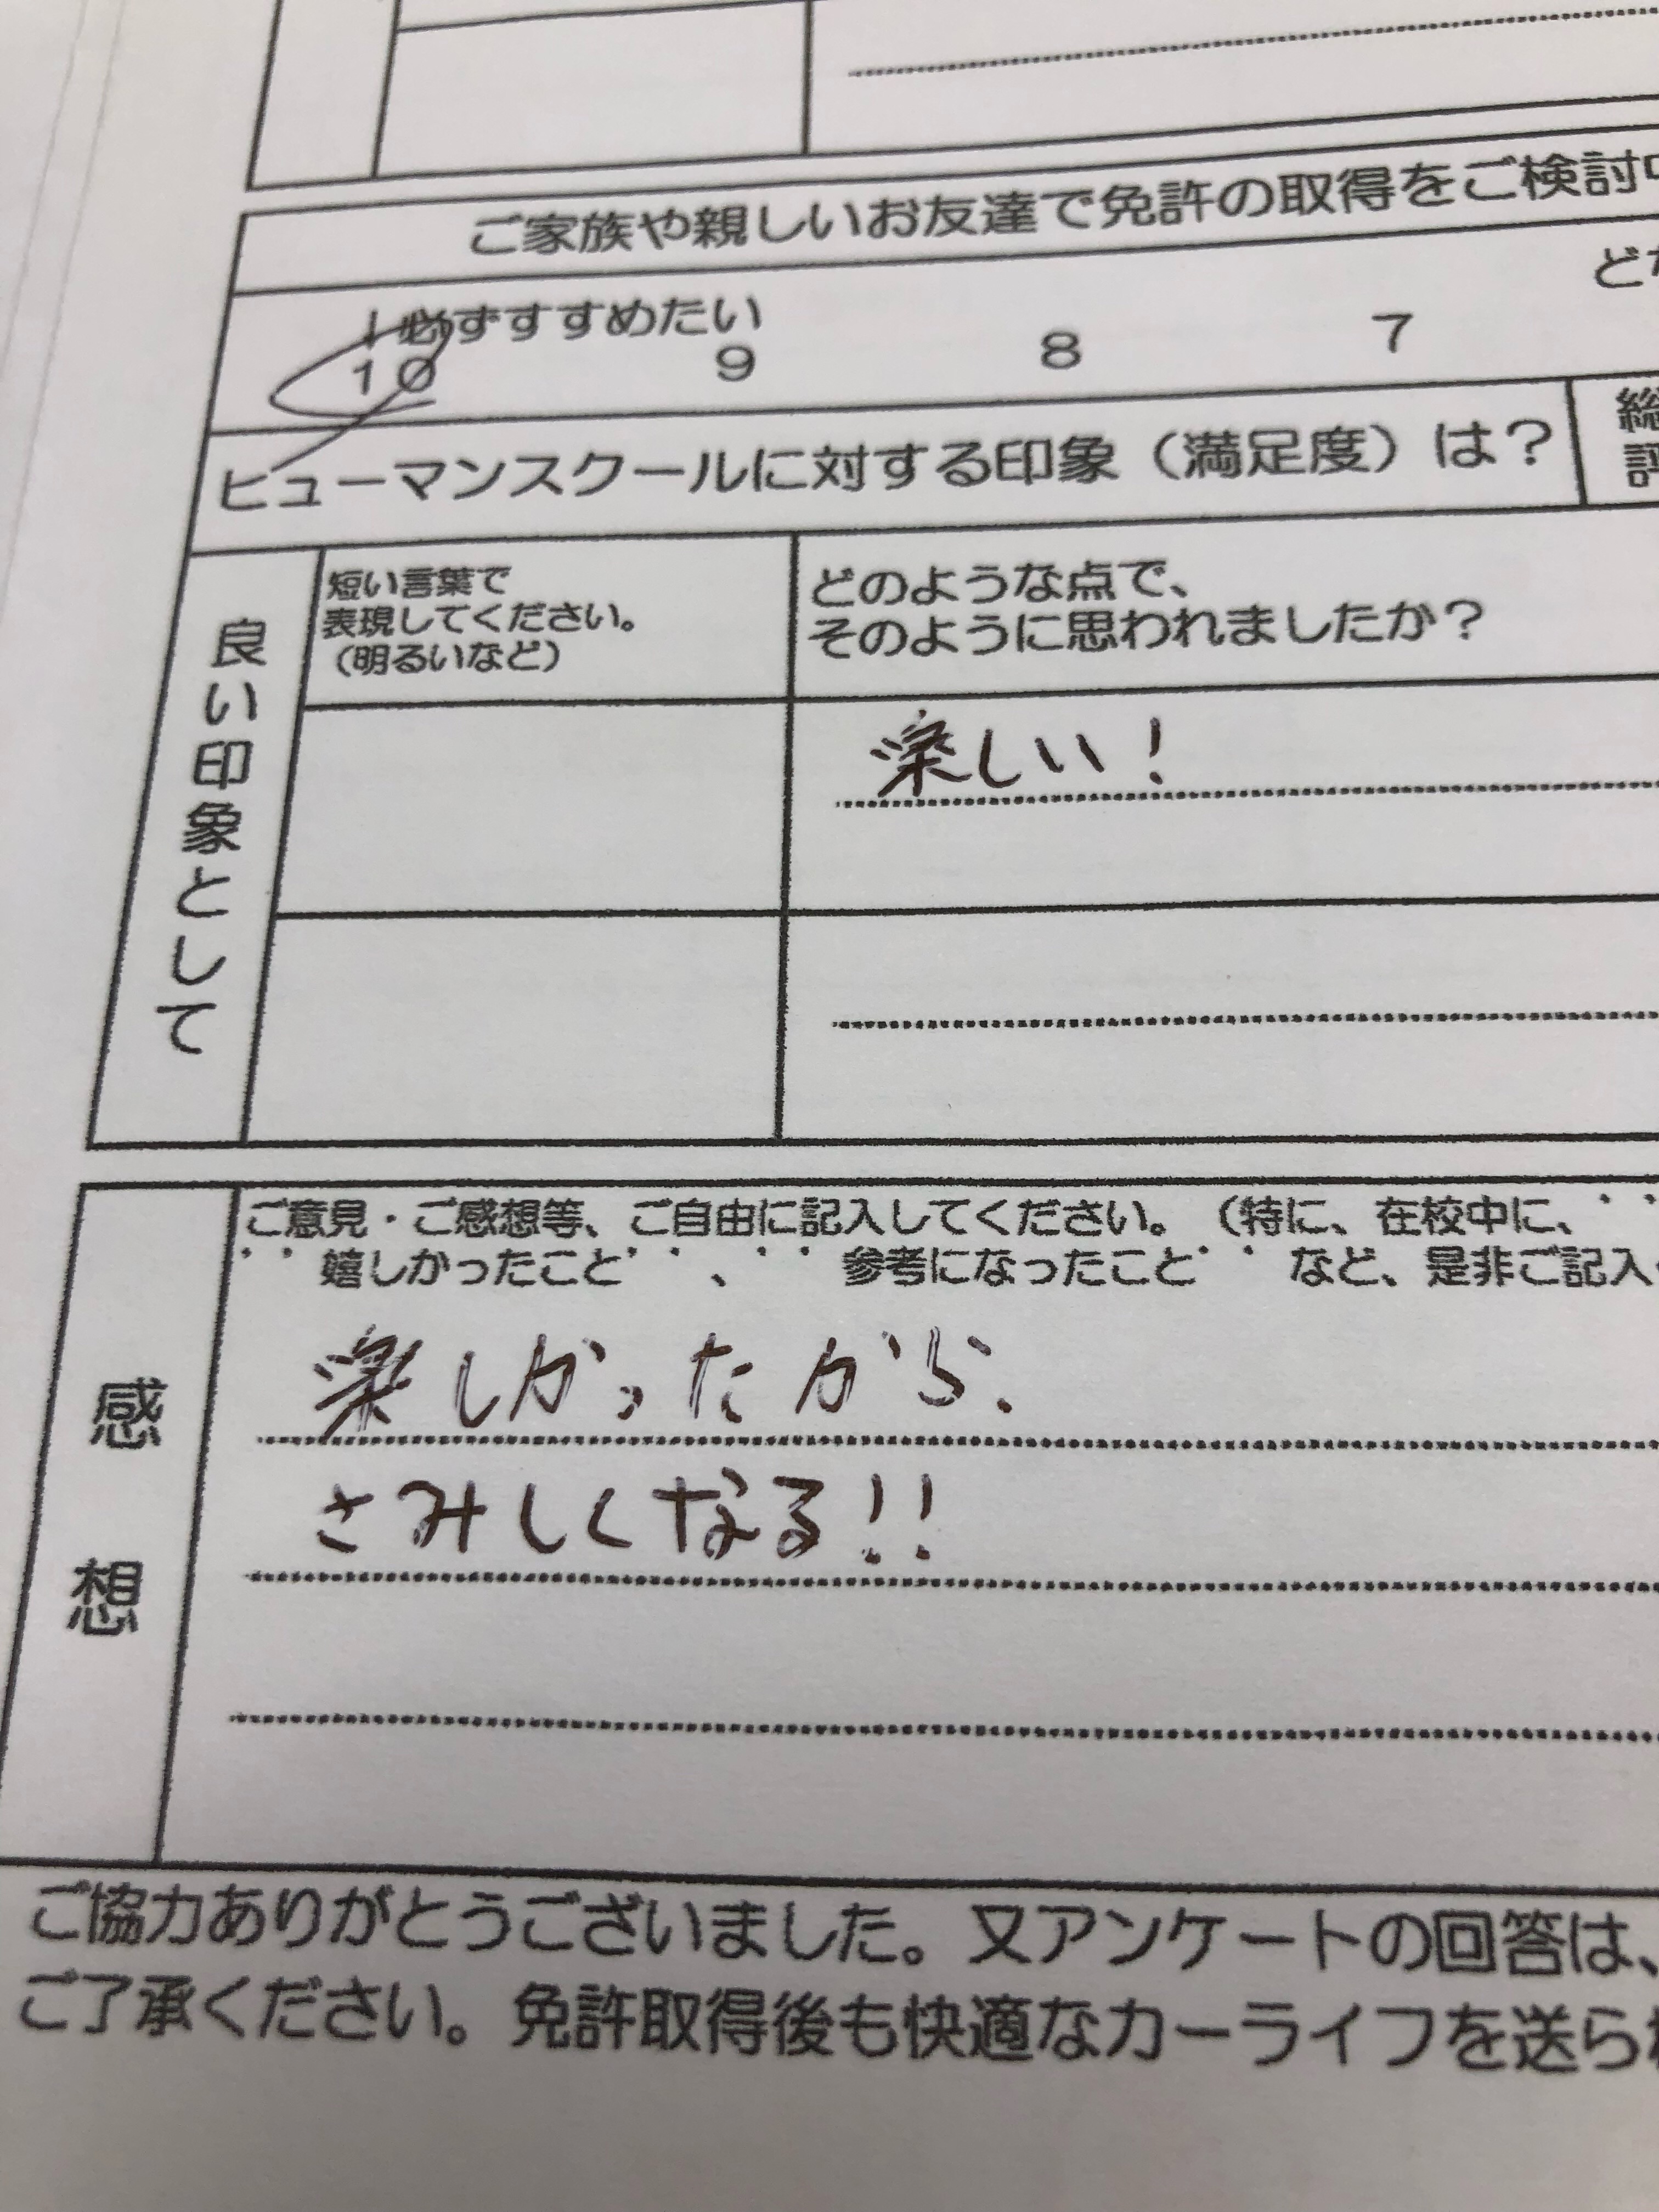 ご家族や親しいお友達で免許の取得をご検討
ど
必ずすすめたい
10 9 8 7
ヒューマンスクールに対する印象（満足度）は？
総評
良い印象として
短い言葉で
表現してください。
（明るいなど）
どのような点で、
そのように思われましたか？
楽しい！
感想
ご意見・ご感想等、ご自由に記入してください。（特に、在校中に、
嬉しかったこと、参考になったことなど、是非ご記入
楽しかったから、
さみしくなる!!
ご協力ありがとうございました。又アンケートの回答は、
ご了承ください。免許取得後も快適なカーライフを送ら